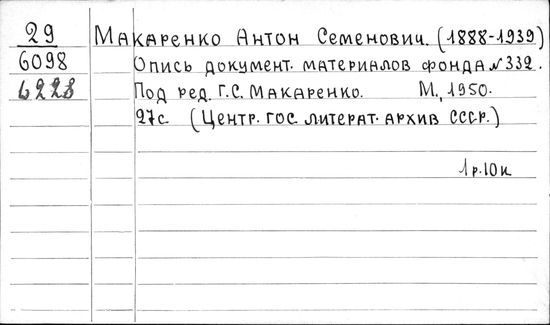 29 Макаренко Антон Семенович. (1888-1939)
6098 Опись документ. материалов фонда №332.
6228 Под ред. Г.С. Макаренко. М., 1950.
27с. (Центр. гос. литерат. архив СССР.)
1р.10к